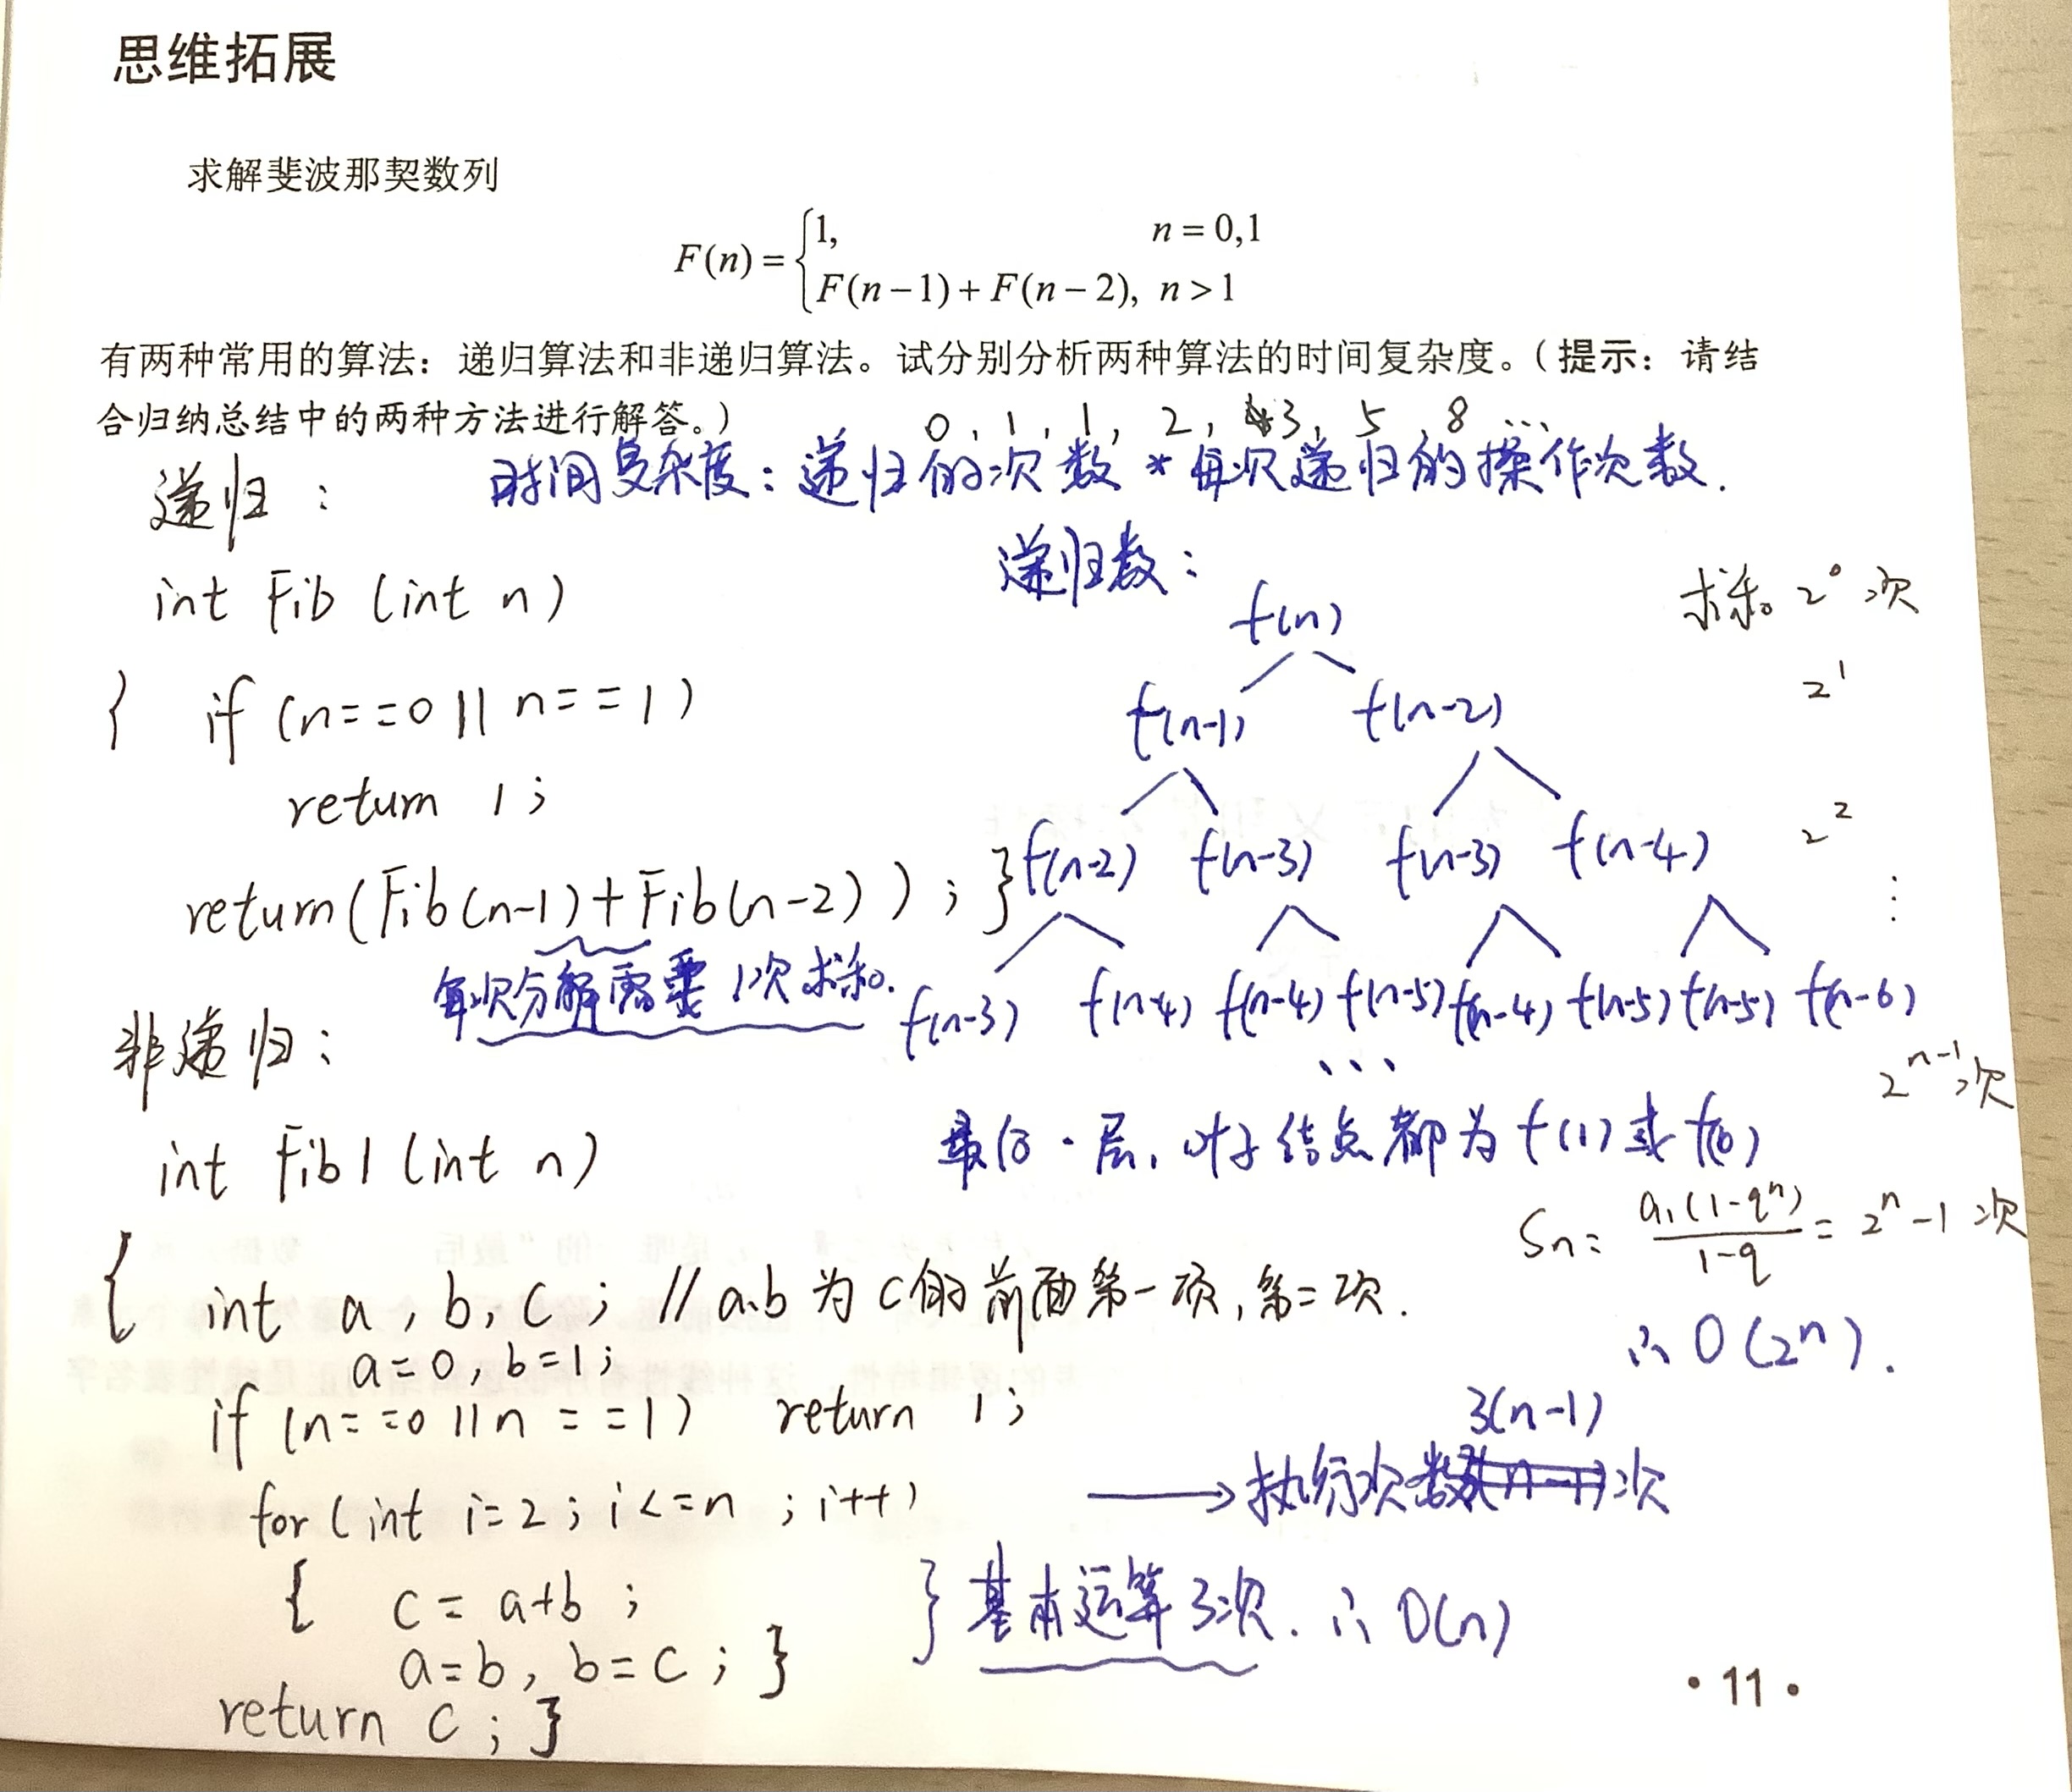 思维拓展
求解斐波那契数列
F(n) = { 1, n = 0,1
F(n − 1) + F(n − 2), n > 1
有两种常用的算法：递归算法和非递归算法。试分别分析两种算法的时间复杂度。（提示：请结
合归纳总结中的两种方法进行解答。）
0, 1, 1, 2, 3, 5, 8 ...
时间复杂度：递归的次数 * 每次递归的操作次数.
递归：
递归数：
int Fib (int n)
f(n) 求和 2^0 次
{ if (n==0 || n==1)
f(n-1) f(n-2) 2^1
return 1;
f(n-2) f(n-3) f(n-3) f(n-4) 2^2
return(Fib(n-1)+Fib(n-2)); }
⋮
每次分解需要1次求和.
f(n-3) f(n-4) f(n-4) f(n-5) f(n-4) f(n-5) f(n-5) f(n-6)
...
2^(n-1)次
非递归：
最后一层, 叶子结点都为 f(1) 或 f(0)
int Fib1 (int n)
Sn = a1(1-q^n)/(1-q) = 2^n-1 次
{ int a, b, c; // a.b 为 c 的前面第一项, 第二次.
∴ O(2^n).
a=0, b=1;
if (n==0 || n==1) return 1;
3(n-1)
for (int i=2; i<=n; i++) → 执行次数 次
{ c = a+b;
a=b, b=c; }
} 基本运算3次. ∴ O(n)
return c; }
• 11 •